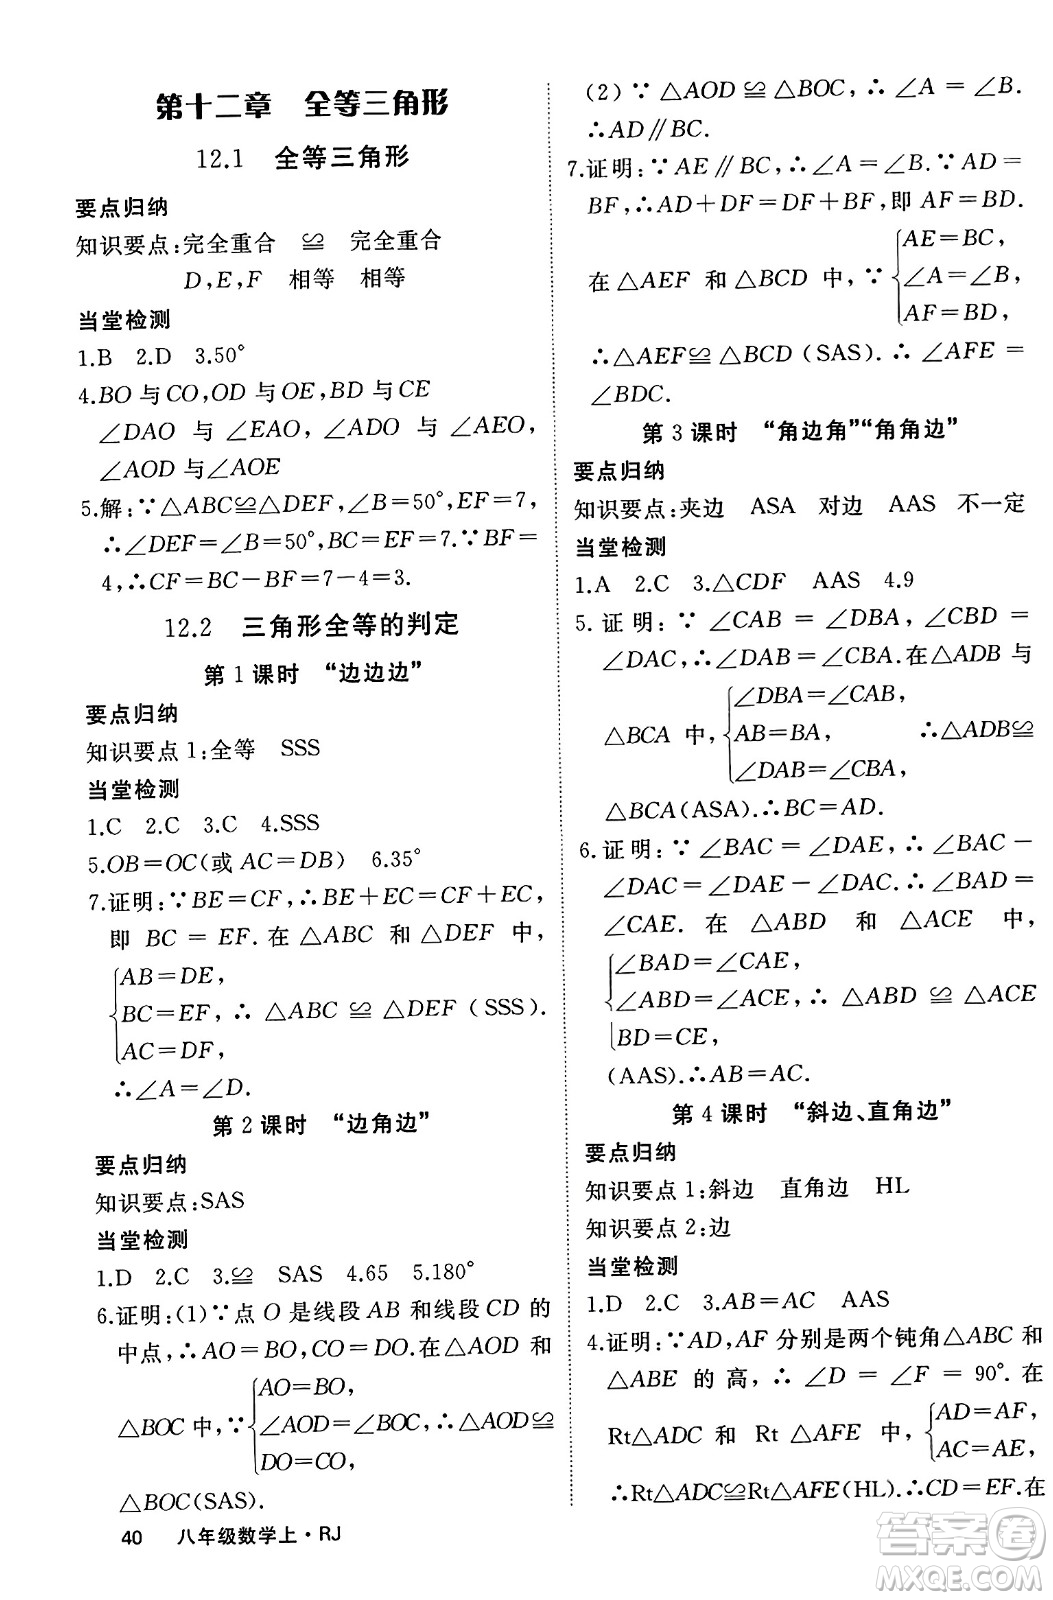 第十二章　全等三角形
12.1　全等三角形
要点归纳
知识要点:完全重合　≌　完全重合
D,E,F　相等　相等
当堂检测
1.B　2.D　3.50°
4.BO 与 CO,OD 与 OE,BD 与 CE
∠DAO 与 ∠EAO, ∠ADO 与 ∠AEO,
∠AOD 与∠AOE
5.解:∵△ABC≌△DEF,∠B=50°,EF=7,
∴∠DEF=∠B=50°,BC=EF=7.∵BF=
4,∴CF=BC−BF=7−4=3.
12.2　三角形全等的判定
第 1 课时　“边边边”
要点归纳
知识要点 1:全等　SSS
当堂检测
1.C　2.C　3.C　4.SSS
5.OB=OC(或 AC=DB)　6.35°
7.证明:∵BE=CF,∴BE+EC=CF+EC,
即 BC = EF.在 △ABC 和 △DEF 中,
AB=DE,
BC=EF, ∴ △ABC ≌ △DEF (SSS).
AC=DF,
∴∠A=∠D.
第 2 课时　“边角边”
要点归纳
知识要点:SAS
当堂检测
1.D　2.C　3.≌　SAS　4.65　5.180°
6.证明:(1)∵点 O 是线段 AB 和线段 CD 的
中点,∴AO=BO,CO=DO.在△AOD 和
AO=BO,
△BOC 中,∵ ∠AOD=∠BOC, ∴△AOD≌
DO=CO,
△BOC(SAS).
40　八年级数学上·RJ
(2) ∵ △AOD ≌ △BOC, ∴ ∠A = ∠B.
∴AD∥BC.
7.证明:∵AE∥BC,∴∠A=∠B.∵AD=
BF,∴AD+DF=DF+BF,即 AF=BD.
AE=BC,
在 △AEF 和 △BCD 中, ∵ ∠A=∠B,
AF=BD,
∴△AEF≌△BCD (SAS). ∴ ∠AFE =
∠BDC.
第 3 课时　“角边角”“角角边”
要点归纳
知识要点:夹边　ASA　对边　AAS　不一定
当堂检测
1.A　2.C　3.△CDF　AAS　4.9
5. 证明: ∵ ∠CAB = ∠DBA, ∠CBD =
∠DAC,∴∠DAB=∠CBA.在△ADB 与
∠DBA=∠CAB,
△BCA 中, AB=BA, ∴△ADB≌
∠DAB=∠CBA,
△BCA(ASA).∴BC=AD.
6.证明: ∵ ∠BAC = ∠DAE, ∴ ∠BAC −
∠DAC =∠DAE −∠DAC.∴∠BAD =
∠CAE. 在 △ABD 和 △ACE 中,
∠BAD=∠CAE,
∠ABD=∠ACE, ∴ △ABD ≌ △ACE
BD=CE,
(AAS).∴AB=AC.
第 4 课时　“斜边、直角边”
要点归纳
知识要点 1:斜边　直角边　HL
知识要点 2:边
当堂检测
1.D　2.C　3.AB=AC　AAS
4.证明:∵AD,AF 分别是两个钝角△ABC 和
△ABE 的高, ∴ ∠D = ∠F = 90°. 在
AD=AF,
Rt△ADC 和 Rt △AFE 中,
AC=AE,
∴Rt△ADC≌Rt△AFE(HL).∴CD=EF.在
答案圈
MXQE.COM